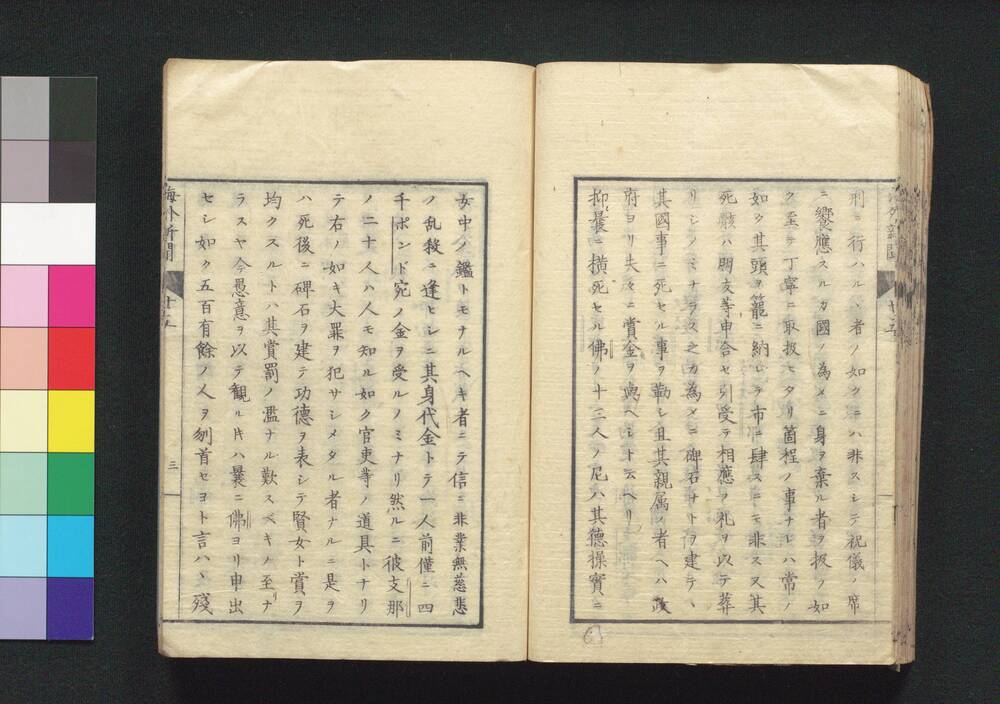 刑ニ行ハルヽ者ノ如クニハ非スシテ祝儀ノ席
ニ饗應スルカ國ノ為メニ身ヲ棄ル者ヲ扱フ如
ク至テ丁寧ニ取扱ヒタリ箇程ノ事ナレハ常ノ
如ク其頭ヲ籠ニ納レテ市ニ肆スニモ非ス又其
死骸ハ朋友等申合セ引受テ相應ノ礼ヲ以テ葬
リシノミナラス之カ為メニ碑石ナトヲ建テヽ
其國事ニ死セル事ヲ勒シ且其親属ノ者ヘハ政
府ヨリ夫々ニ賞金ヲ與ヘシト云ヘリ
抑曩ニ横死セル佛ノ十三人ノ尼ハ其徳操實ニ
海外新聞
女中ノ鑑トモナルヘキ者ニテ信ニ非業無慈悲
ノ乱殺ニ逢ヒシニ其身代金トテ一人前僅ニ四
千ポンド宛ノ金ヲ受ルノミナリ然ルニ彼支那
ノ二十人ハ人モ知ル如ク官吏等ノ道具トナリ
テ右ノ如キ大罪ヲ犯サシメタル者ナルニ是ヲ
ハ死後ニ碑石ヲ建テ功徳ヲ表シテ賢女ト賞ヲ
均クスルトハ其賞罰ノ濫ナル歎スヘキノ至リナ
ラスヤ今愚意ヲ以テ観ル片ハ曩ニ佛ヨリ申出
セシ如ク五百有餘ノ人ヲ刎首セヨト言ハヽ殘
海外新聞
三